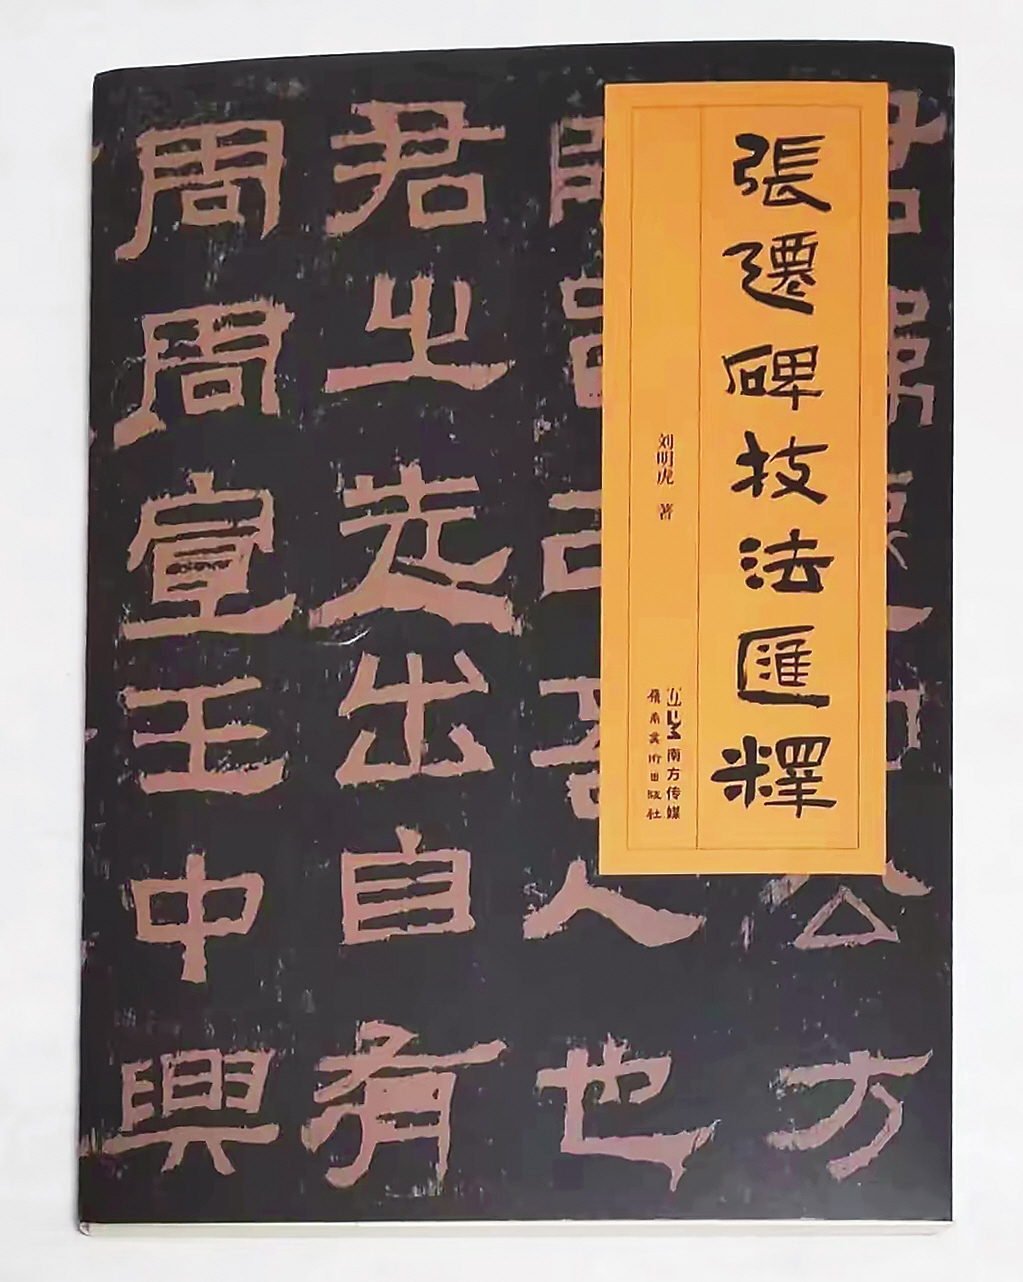 張遷碑技法匯釋
刘明虎 著
南方传媒
嶺南美術出版社
公方
人也
君之先出自有
周周宣王中興